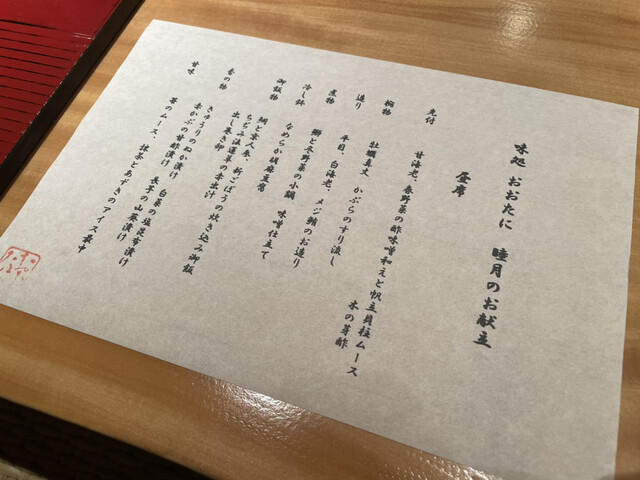 味処 おおたに 睦月のお献立
昼席
先付 甘海老、春野菜の酢味噌和えと帆立貝柱ムース
木の芽酢
椀物 牡蠣真丈 かぶらのすり流し
造り 平目、白海老、メジ鮪のお造り
煮物 鰤と冬野菜の小鍋 味噌仕立て
冷し鉢 なめらか胡麻豆腐
御飯物 鯛と金人参、新ごぼうの炊き込み御飯
ちぢみ法蓮草の赤出汁
出し巻き卵
香の物 きゅうりのぬか漬け 白菜の塩昆布漬け
赤かぶの甘酢漬け 長芋の山葵漬け
甘味 苺のムース、抹茶とあずきのアイス最中